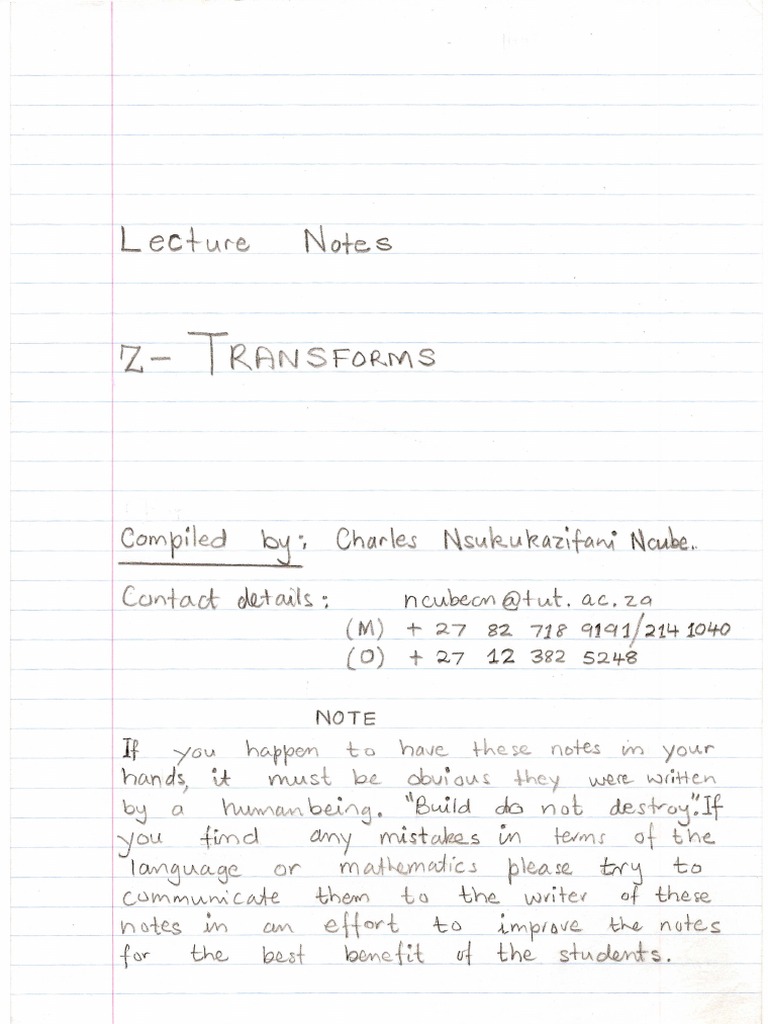 Lecture Notes
Z- TRANSFORMS
Compiled by: Charles Nsukukazifani Ncube.
Contact details: ncubecn@tut.ac.za
(M) + 27 82 718 9191/214 1040
(O) + 27 12 382 5248
NOTE
If you happen to have these notes in your
hands, it must be obvious they were written
by a humanbeing. "Build do not destroy". If
you find any mistakes in terms of the
language or mathematics please try to
communicate them to the writer of these
notes in an effort to improve the notes
for the best benefit of the students.